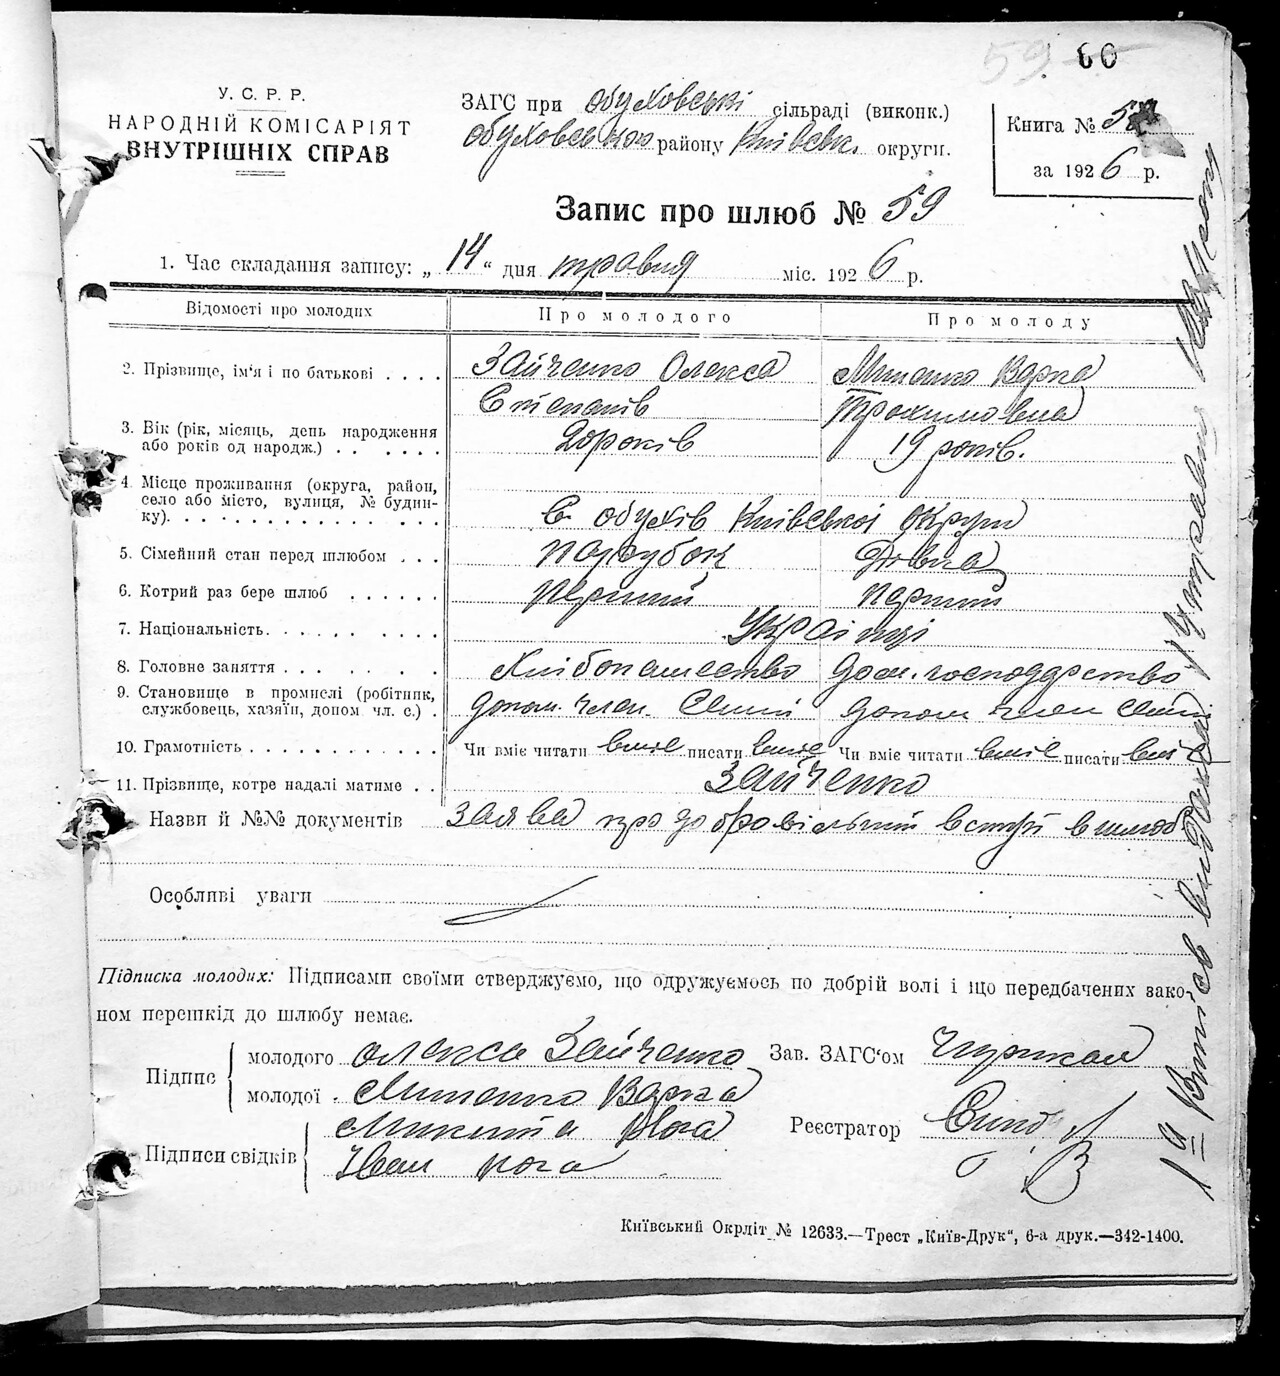 59 60
У. С. Р. Р.
НАРОДНІЙ КОМІСАРІЯТ
ВНУТРІШНІХ СПРАВ
ЗАГС при Обуховські сільраді (виконк.)
Обуховського району Київськ. округи.
Книга № 5
за 1926 р.
Запис про шлюб № 59
1. Час складання запису: „14“ дня травня міс. 1926 р.
Відомості про молодих Про молодого Про молоду
2. Прізвище, ім'я і по батькові . . . . Зайченко Олекса Мишенко Варка
Степанів Трохимовна
3. Вік (рік, місяць, день народження
або років од народж.) . . . . . . 20 років 19 років.
4. Місце проживання (округа, район,
село або місто, вулиця, № будин-
ку). . . . . . . . . . . . . . . с. Обухів Київської округи
5. Сімейний стан перед шлюбом . . . парубок Дівка
6. Котрий раз бере шлюб . . . . . . перший перший
7. Національність. . . . . . . . . . Українці
8. Головне заняття . . . . . . . . . Хлібопашество Дом. господарство
9. Становище в промислі (робітник,
службовець, хазяїн, допом. чл. с.) . допом. член. семії допом член семії
10. Грамотність . . . . . . . . . . . Чи вміє читати вміє писати вміє Чи вміє читати вміє писати вміє
11. Прізвище, котре надалі матиме . . Зайченко
Назви й №№ документів Заява про добровільний вступ в шлюб
Особливі уваги
Підписка молодих: Підписами своїми стверджуємо, що одружуємось по добрій волі і що передбачених зако-
ном перешкід до шлюбу немає.
Підпис
молодого Олекса Зайченко Зав. ЗАГС'ом
молодої . Мишенко Варка
Підписи свідків
Микита Рога Реєстратор
Іван Рога
Київський Окрліт № 12633.—Трест „Київ-Друк“, 6-а друк.—342-1400.
1й Витяг видано 14 травня